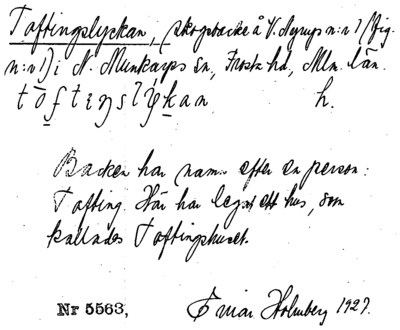 Toftingslyckan, skogsbacke å V. Nyrups n:r 1 (Fig.
n:r 1) i N. Munkarps sn, Frosta hd, Mlm. län.
h.
Backen har namn efter en person:
Tofting. Här har legat ett hus, som
kallades Toftingshuset.
Nr 5563, Einar Holmberg 1927.